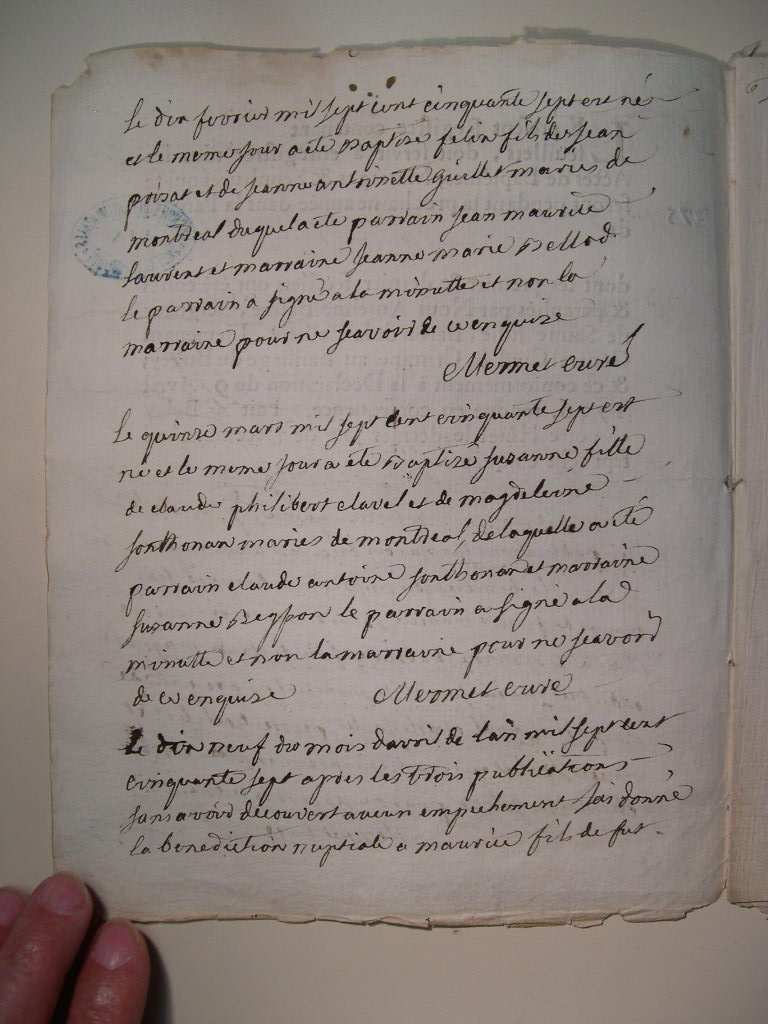 le dix fevrier mil sept cent cinquante sept est né
et le meme jour a eté baptize felix fils de jean
poisat et de jeanne antoinette guillet mariés de
montreal duquel a eté parrain jean maurice
laurent et marraine jeanne marie bellod
le parrain a signé a la minutte et non la
marraine pour ne scavoir de ce enquize
Mermet curé
le quinze mars mil sept cent cinquante sept est
né et le meme jour a eté baptizé suzanne fille
de claude philibert clavel et de magdeleine
sonthonax mariés de montreal, de laquelle a eté
parrain claude antoine sonthonax et marraine
suzanne le parrain a signé a la
minutte et non la marraine pour ne scavoir
de ce enquize Mermet curé
Le dix neuf du mois davril de lan mil sept cent
cinquante sept apres les trois publications
sans avoir decouvert aucun empechement jai donné
la benediction nuptiale a maurice fils de fut